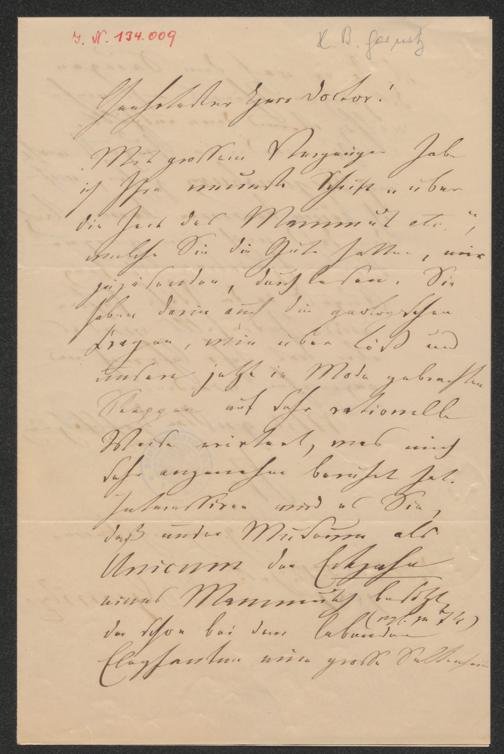 J. N. 134.009
H. B. Geinitz
Geehrtester Herr Doctor!
Mit grossem Vergnügen habe
ich Ihre neueste Schrift „über
die Zeit des Mammut etc.",
welche Sie die Güte hatten, mir
zuzusenden, durchlesen. Sie
haben darin auch die
Fragen, wie über Löß und
unsere jetzt in Mode gebrachten
Steppen auf sehr rationelle
Weise erörtert, was mich
sehr angenehm berührt hat.
Interessiren wird es Sie,
daß unser Museum als
Unicum den Eckzahn
eines Mammuth besitzt,
der schon bei dem lebenden
Elephanten eine grosse Seltenheit